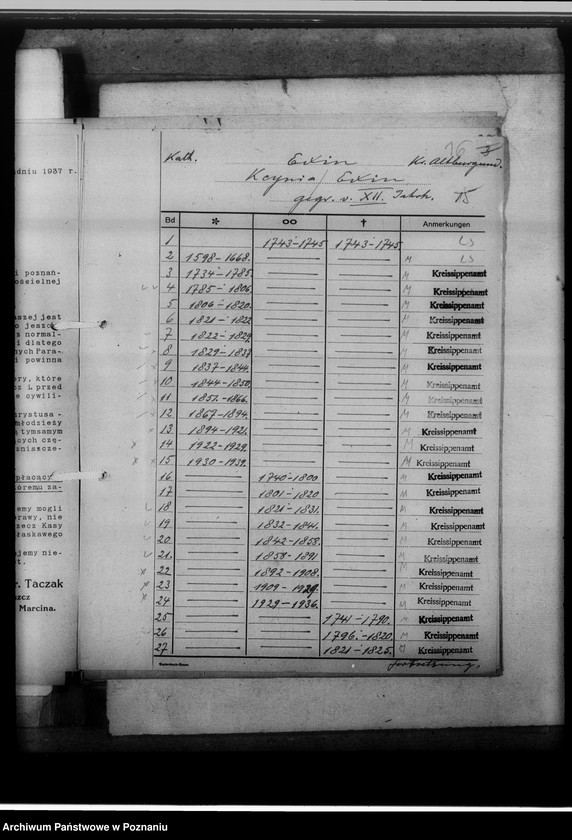 dniu 1937 r.
i poznań-
ościelnej
aszej jest
o jeszcz
a normal-
i dlatego
nych Para-
i powinna
ery, które
oz i przed
e cywili-
rystusa -
młodzieży
ą tymsamym
ących czę-
zniszcze-
płacący
óremu za-
emy mogli
rawy, nie
rzecz Kasy
łaskawego
ajemy nie-
t.
r. Taczak
szcz
Marcina.
Kath. Exin Kr. Altburgund.
Kcynia / Exin
gegr. v. XII. Jahrh. 15
Bd * oo † Anmerkungen
1 1743-1745 1743-1745 LS
2 1598-1668. M LS
3 1734-1785. M Kreissippenamt
4 1785-1806. M Kreissippenamt
5 1806-1820. M Kreissippenamt
6 1821-1822 M Kreissippenamt
7 1822-1829. M Kreissippenamt
8 1829-1837. M Kreissippenamt
9 1837-1844. M Kreissippenamt
10 1844-1850. M Kreissippenamt
11 1851.-1866. M Kreissippenamt
12 1867-1894. M Kreissippenamt
13 1894-1921. M Kreissippenamt
14 1922-1929. M Kreissippenamt
15 1930-1939. M Kreissippenamt
16 1740-1800. M Kreissippenamt
17 1801-1820 M Kreissippenamt
18 1821-1831. M Kreissippenamt
19 1832-1841. M Kreissippenamt
20. 1842-1858. M Kreissippenamt
21. 1858-1891 M Kreissippenamt
22 1892-1908. M Kreissippenamt
23 1909-1929. M Kreissippenamt
24 1929-1936. M Kreissippenamt
25 1741-1790. M Kreissippenamt
26 1796.-1820. M Kreissippenamt
27 1821-1825. M Kreissippenamt
Fortsetzung.
Archiwum Państwowe w Poznaniu